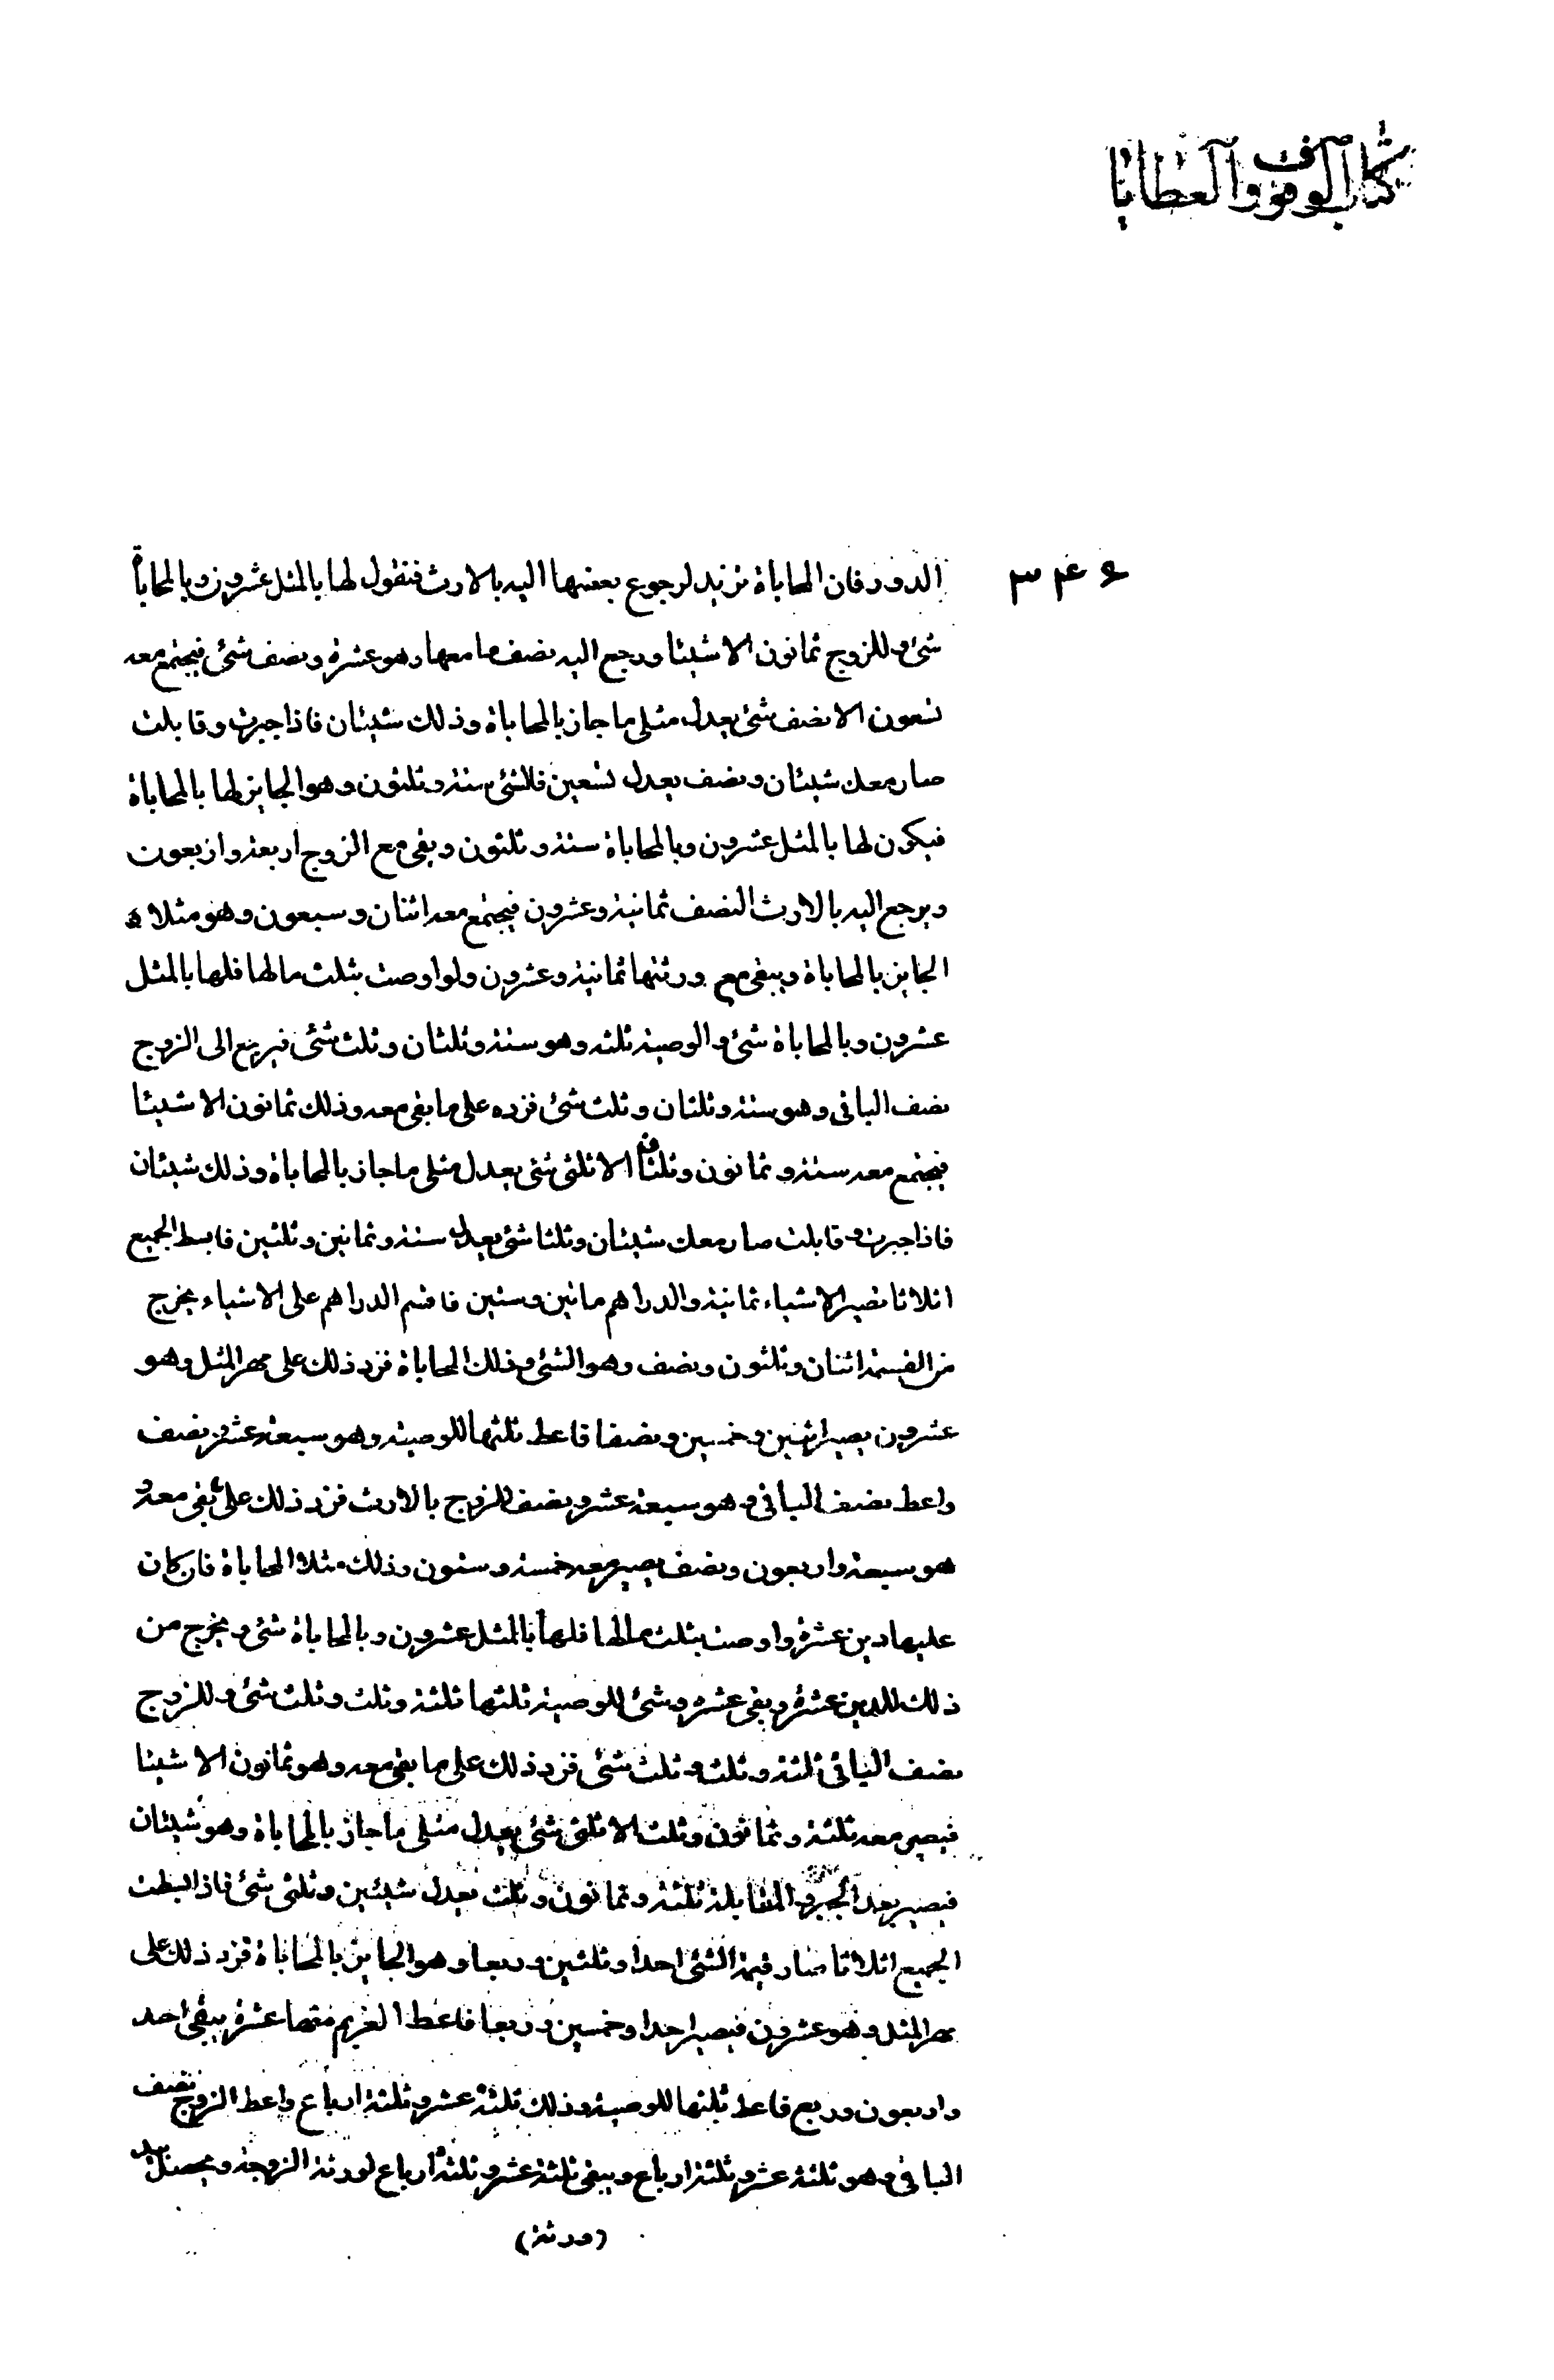 كتاب الوقوف والعطايا
٣٤٦
الدور فان المحاباة تزيد لرجوع بعضها اليه بالارث فنقول لها بالمثل عشرون وبالمحاباة
شئ وللزوج ثمانون الا شيئا ورجع اليه نصف ما معها وهو عشرة ونصف شئ فيجتمع معه
تسعون الا نصف شئ يعدل مثلى ما جاز بالمحاباة وذلك شيئان فاذا جبرت وقابلت
صار معك شيئان ونصف يعدل تسعين فالشئ ستة وثلثون وهو الجايز لها بالمحاباة
فيكون لها بالمثل عشرون وبالمحاباة ستة وثلثون وبقى مع الزوج اربعة واربعون
ويرجع اليه بالارث النصف ثمانية وعشرون فيجتمع معه اثنان وسبعون وهو مثلا ه
الجايز بالمحاباة ويبقى مع ورثتها ثمانية وعشرون ولو اوصت بثلث مالها فلها بالمثل
عشرون وبالمحاباة شئ والوصية ثلثه وهو ستة وثلثان وثلث شئ فيرجع الى الزوج
نصف الباقى وهو ستة وثلثان وثلث شئ فزده على ما بقى معه وذلك ثمانون الا شيئا
فيجتمع معه ستة وثمانون وثلثان الا ثلثى شئ يعدل مثلى ما جاز بالمحاباة وذلك شيئان
فاذا جبرت وقابلت صار معك شيئان وثلثا شئ يعدل ستة وثمانين وثلثين فابسط الجميع
اثلاثا تصير الاشياء ثمانية والدراهم مائتين وستين فاقسم الدراهم على الاشياء يخرج
من القسمة اثنان وثلثون ونصف وهو الشئ وذلك المحاباة فزد ذلك على مهر المثل وهو
عشرون يصير اثنين وخمسين ونصفا فاعط ثلثها للوصية وهو سبعة عشر ونصف
واعط نصف الباقى وهو سبعة عشر ونصف للزوج بالارث فزد ذلك على ما بقى معه و
هو سبعة واربعون ونصف يصير معه خمسة وستون وذلك مثلا المحاباة فان كان
عليها دين عشرة واوصت بثلث مالها فلها بالمثل عشرون وبالمحاباة شئ ويخرج من
ذلك للدين عشرة وبقى عشرة وشئ للوصية ثلثها ثلثة وثلث وثلث شئ وللزوج
نصف الباقى ثلثة وثلث وثلث شئ فزد ذلك على ما بقى معه وهو ثمانون الا شيئا
فيصير معه ثلثة وثمانون وثلث الا ثلثى شئ يعدل مثلى ما جاز بالمحاباة وهو شيئان
فيصير بعد الجبر والمقابلة ثلثة وثمانون وثلث يعدل شيئين وثلثى شئ فاذا بسطت
الجميع اثلاثا صار قيمة الشئ احدا وثلثين وربعا وهو الجايز بالمحاباة فزد ذلك على
مهر المثل وهو عشرون فيصير احدا وخمسين وربعا فاعط الغريم منها عشرة يبقى احد
واربعون وربع فاعط ثلثها للوصية وذلك ثلثة عشر وثلثة ارباع واعط الزوج نصف
الباقى وهو ثلثة عشر وثلثة ارباع ويبقى ثلثة عشر وثلثة ارباع لورثة الزوجة ويحصل بيد
(ورثة)